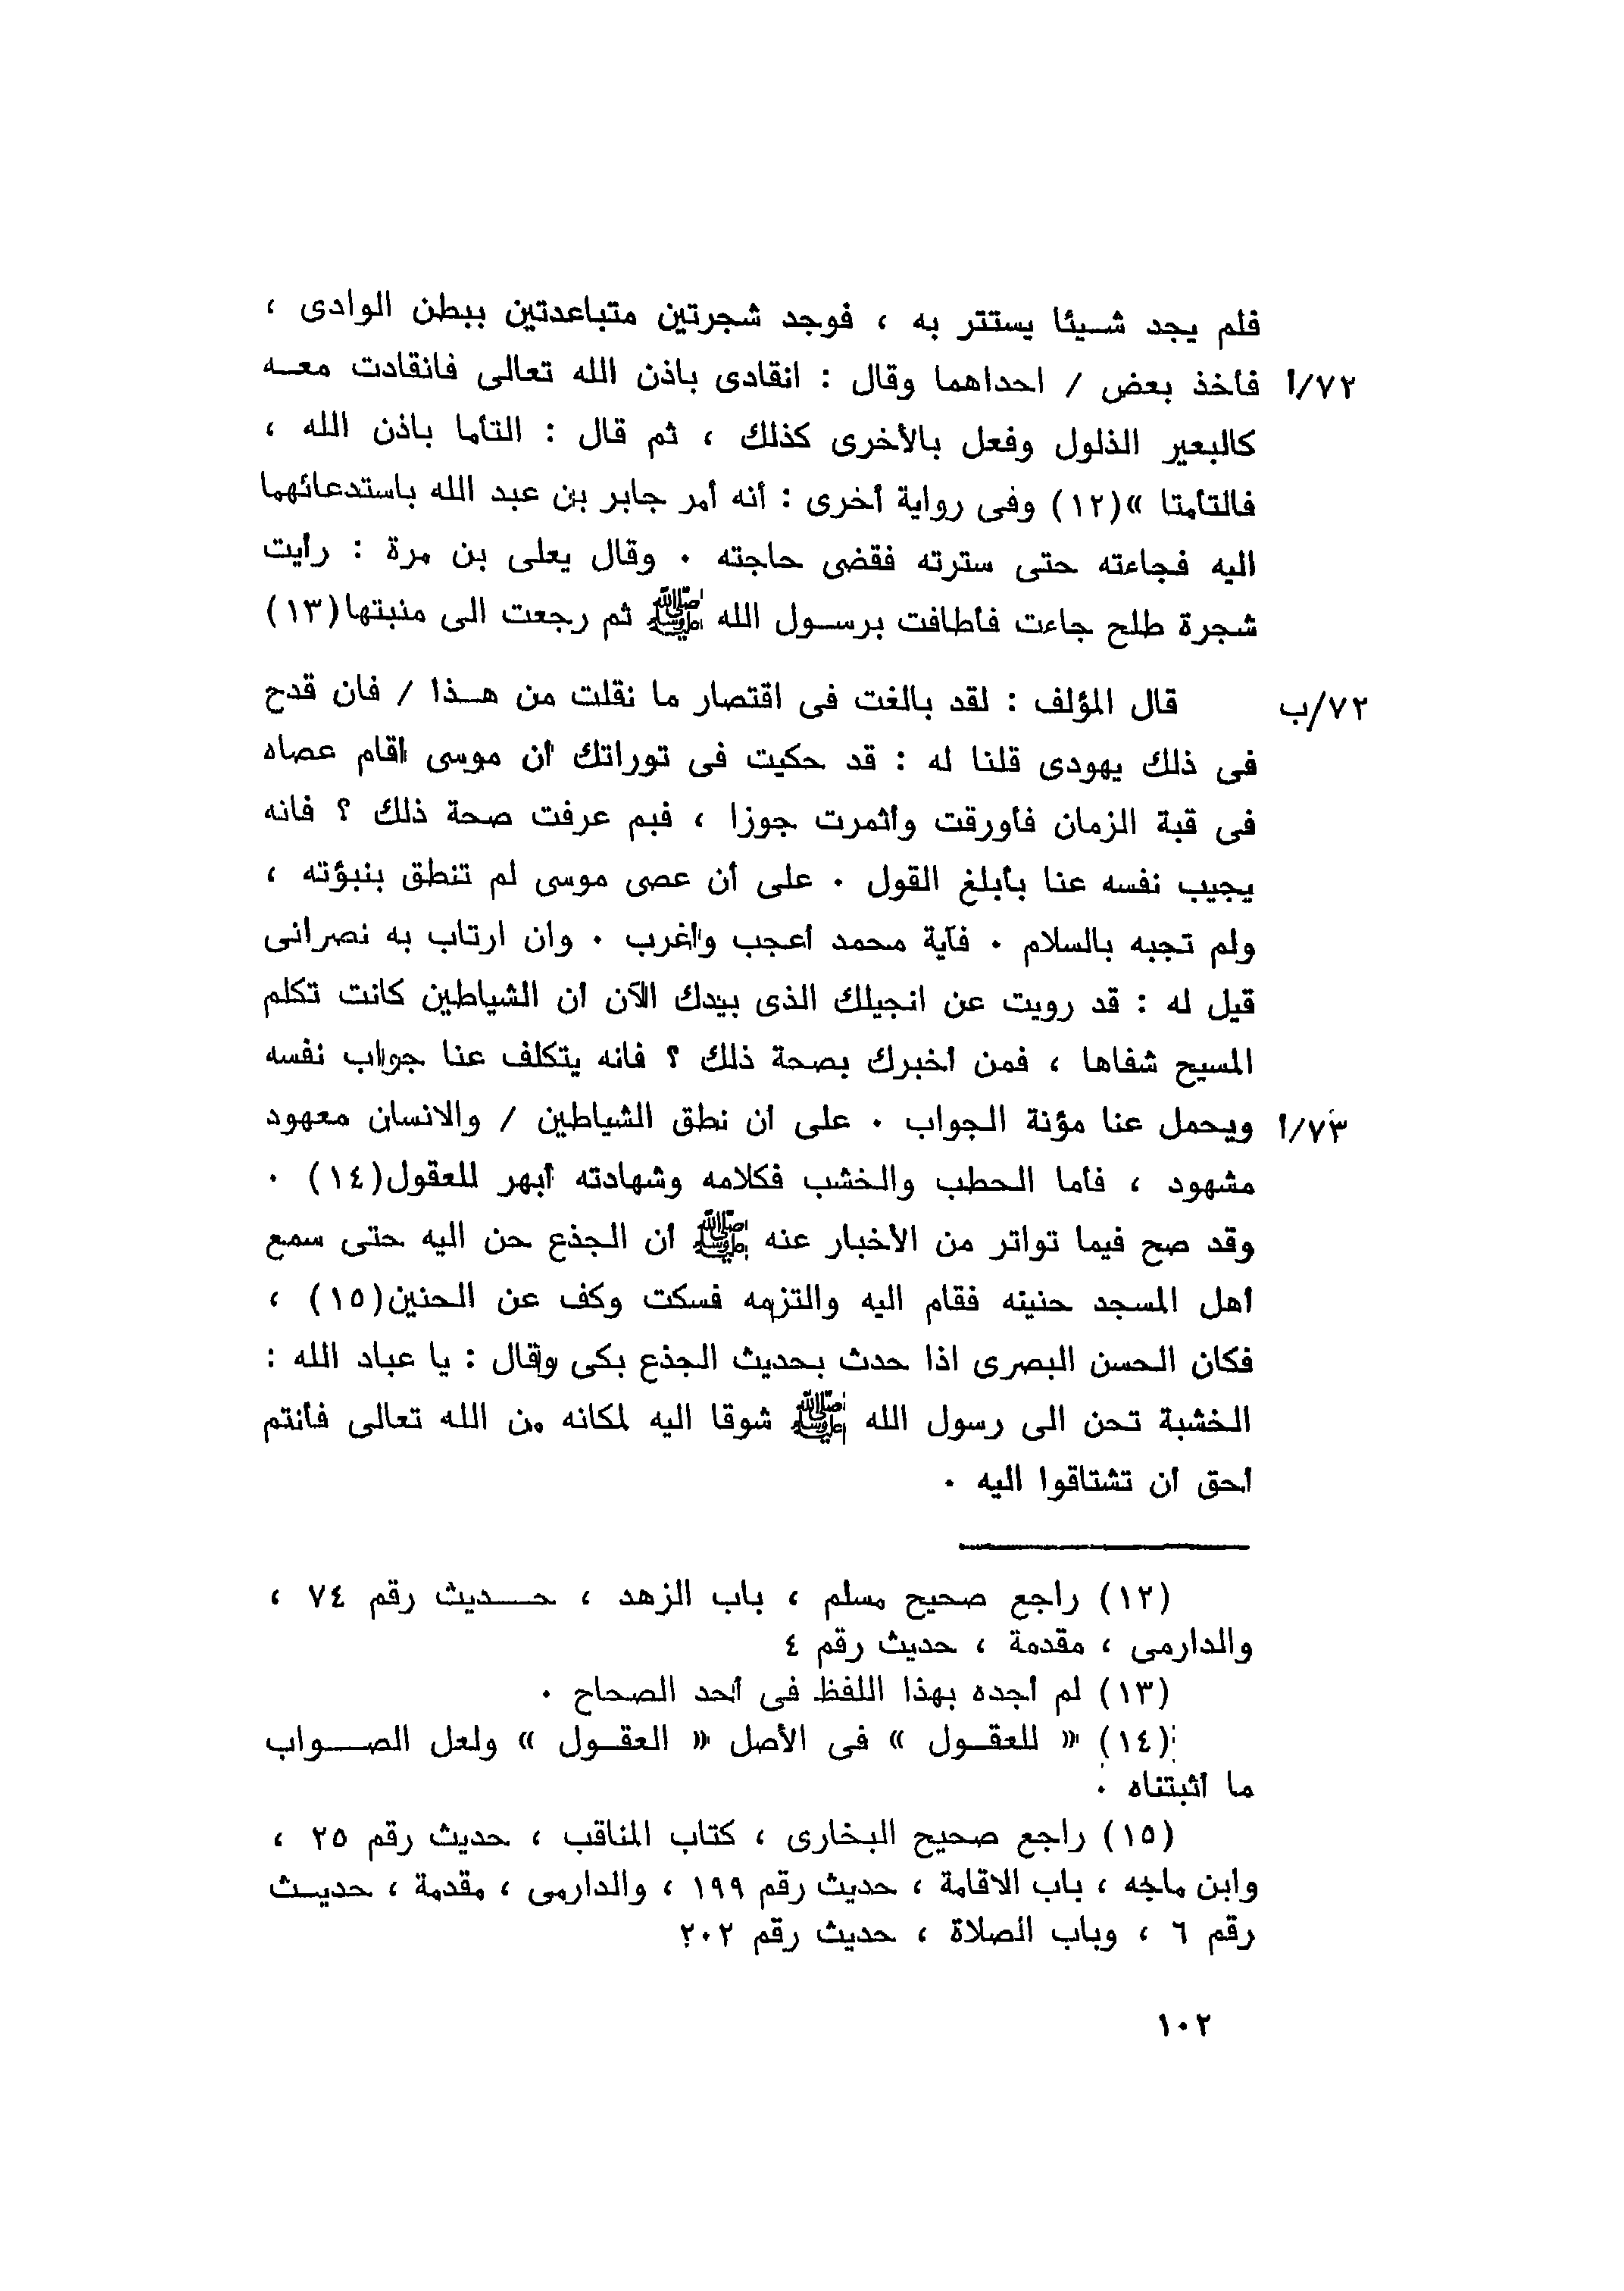 فلم يجد شـيئا يستتر به ، فوجد شجرتين متباعدتين ببطن الوادى ،
٧٢/أ فأخذ بعض / احداهما وقال : انقادى باذن الله تعالى فانقادت معـه
كالبعير الذلول وفعل بالأخرى كذلك ، ثم قال : التأما باذن الله ،
فالتأمتا »(١٢) وفى رواية أخرى : أنه أمر جابر بن عبد الله باستدعائهما
اليه فجاءته حتى سترته فقضى حاجته ٠ وقال يعلى بن مرة : رأيت
شجرة طلح جاءت فأطافت برسـول الله ﷺ ثم رجعت الى منبتها(١٣)
٧٢/ب قال المؤلف : لقد بالغت فى اقتصار ما نقلت من هـذا / فان قدح
فى ذلك يهودى قلنا له : قد حكيت فى توراتك أن موسى أقام عصاه
فى قبة الزمان فأورقت وأثمرت جوزا ، فبم عرفت صحة ذلك ؟ فانه
يجيب نفسه عنا بأبلغ القول ٠ على أن عصى موسى لم تنطق بنبؤته ،
ولم تجبه بالسلام ٠ فآية محمد أعجب وأغرب ٠ وان ارتاب به نصرانى
قيل له : قد رويت عن انجيلك الذى بيدك الآن أن الشياطين كانت تكلم
المسيح شفاها ، فمن أخبرك بصحة ذلك ؟ فانه يتكلف عنا جواب نفسه
٧٣/أ ويحمل عنا مؤنة الجواب ٠ على أن نطق الشياطين / والانسان معهود
مشهود ، فأما الحطب والخشب فكلامه وشهادته أبهر للعقول(١٤) ٠
وقد صح فيما تواتر من الأخبار عنه ﷺ أن الجذع حن اليه حتى سمع
أهل المسجد حنينه فقام اليه والتزمه فسكت وكف عن الحنين(١٥) ،
فكان الحسن البصرى اذا حدث بحديث الجذع بكى وقال : يا عباد الله :
الخشبة تحن الى رسول الله ﷺ شوقا اليه لمكانه من الله تعالى فأنتم
أحق أن تشتاقوا اليه ٠
(١٢) راجع صحيح مسلم ، باب الزهد ، حـديث رقم ٧٤ ،
والدارمى ، مقدمة ، حديث رقم ٤
(١٣) لم أجده بهذا اللفظ فى أحد الصحاح ٠
(١٤) « للعقـول » فى الأصل « العقـول » ولعل الصـواب
ما أثبتناه ٠
(١٥) راجع صحيح البخارى ، كتاب المناقب ، حديث رقم ٢٥ ،
وابن ماجه ، باب الاقامة ، حديث رقم ١٩٩ ، والدارمى ، مقدمة ، حديـث
رقم ٦ ، وباب الصلاة ، حديث رقم ٢٠٢
١٠٢